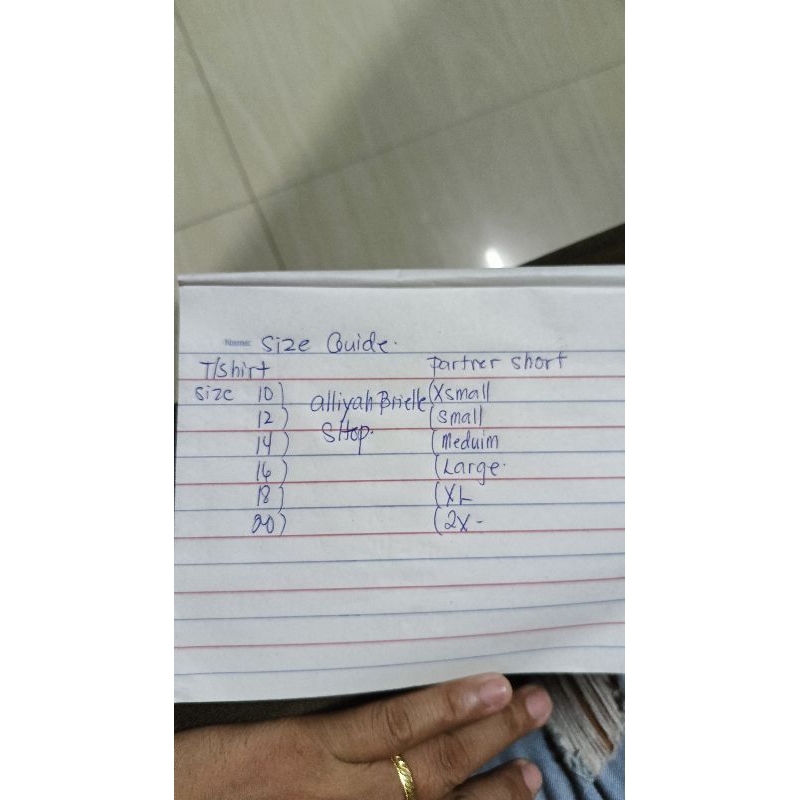 Name: Size Guide.
T/shirt partner short
Size 10) (Xsmall
alliyah Brielle
12) (small
SHop.
14) (meduim
16) (Large.
18) (XL
20) (2X-